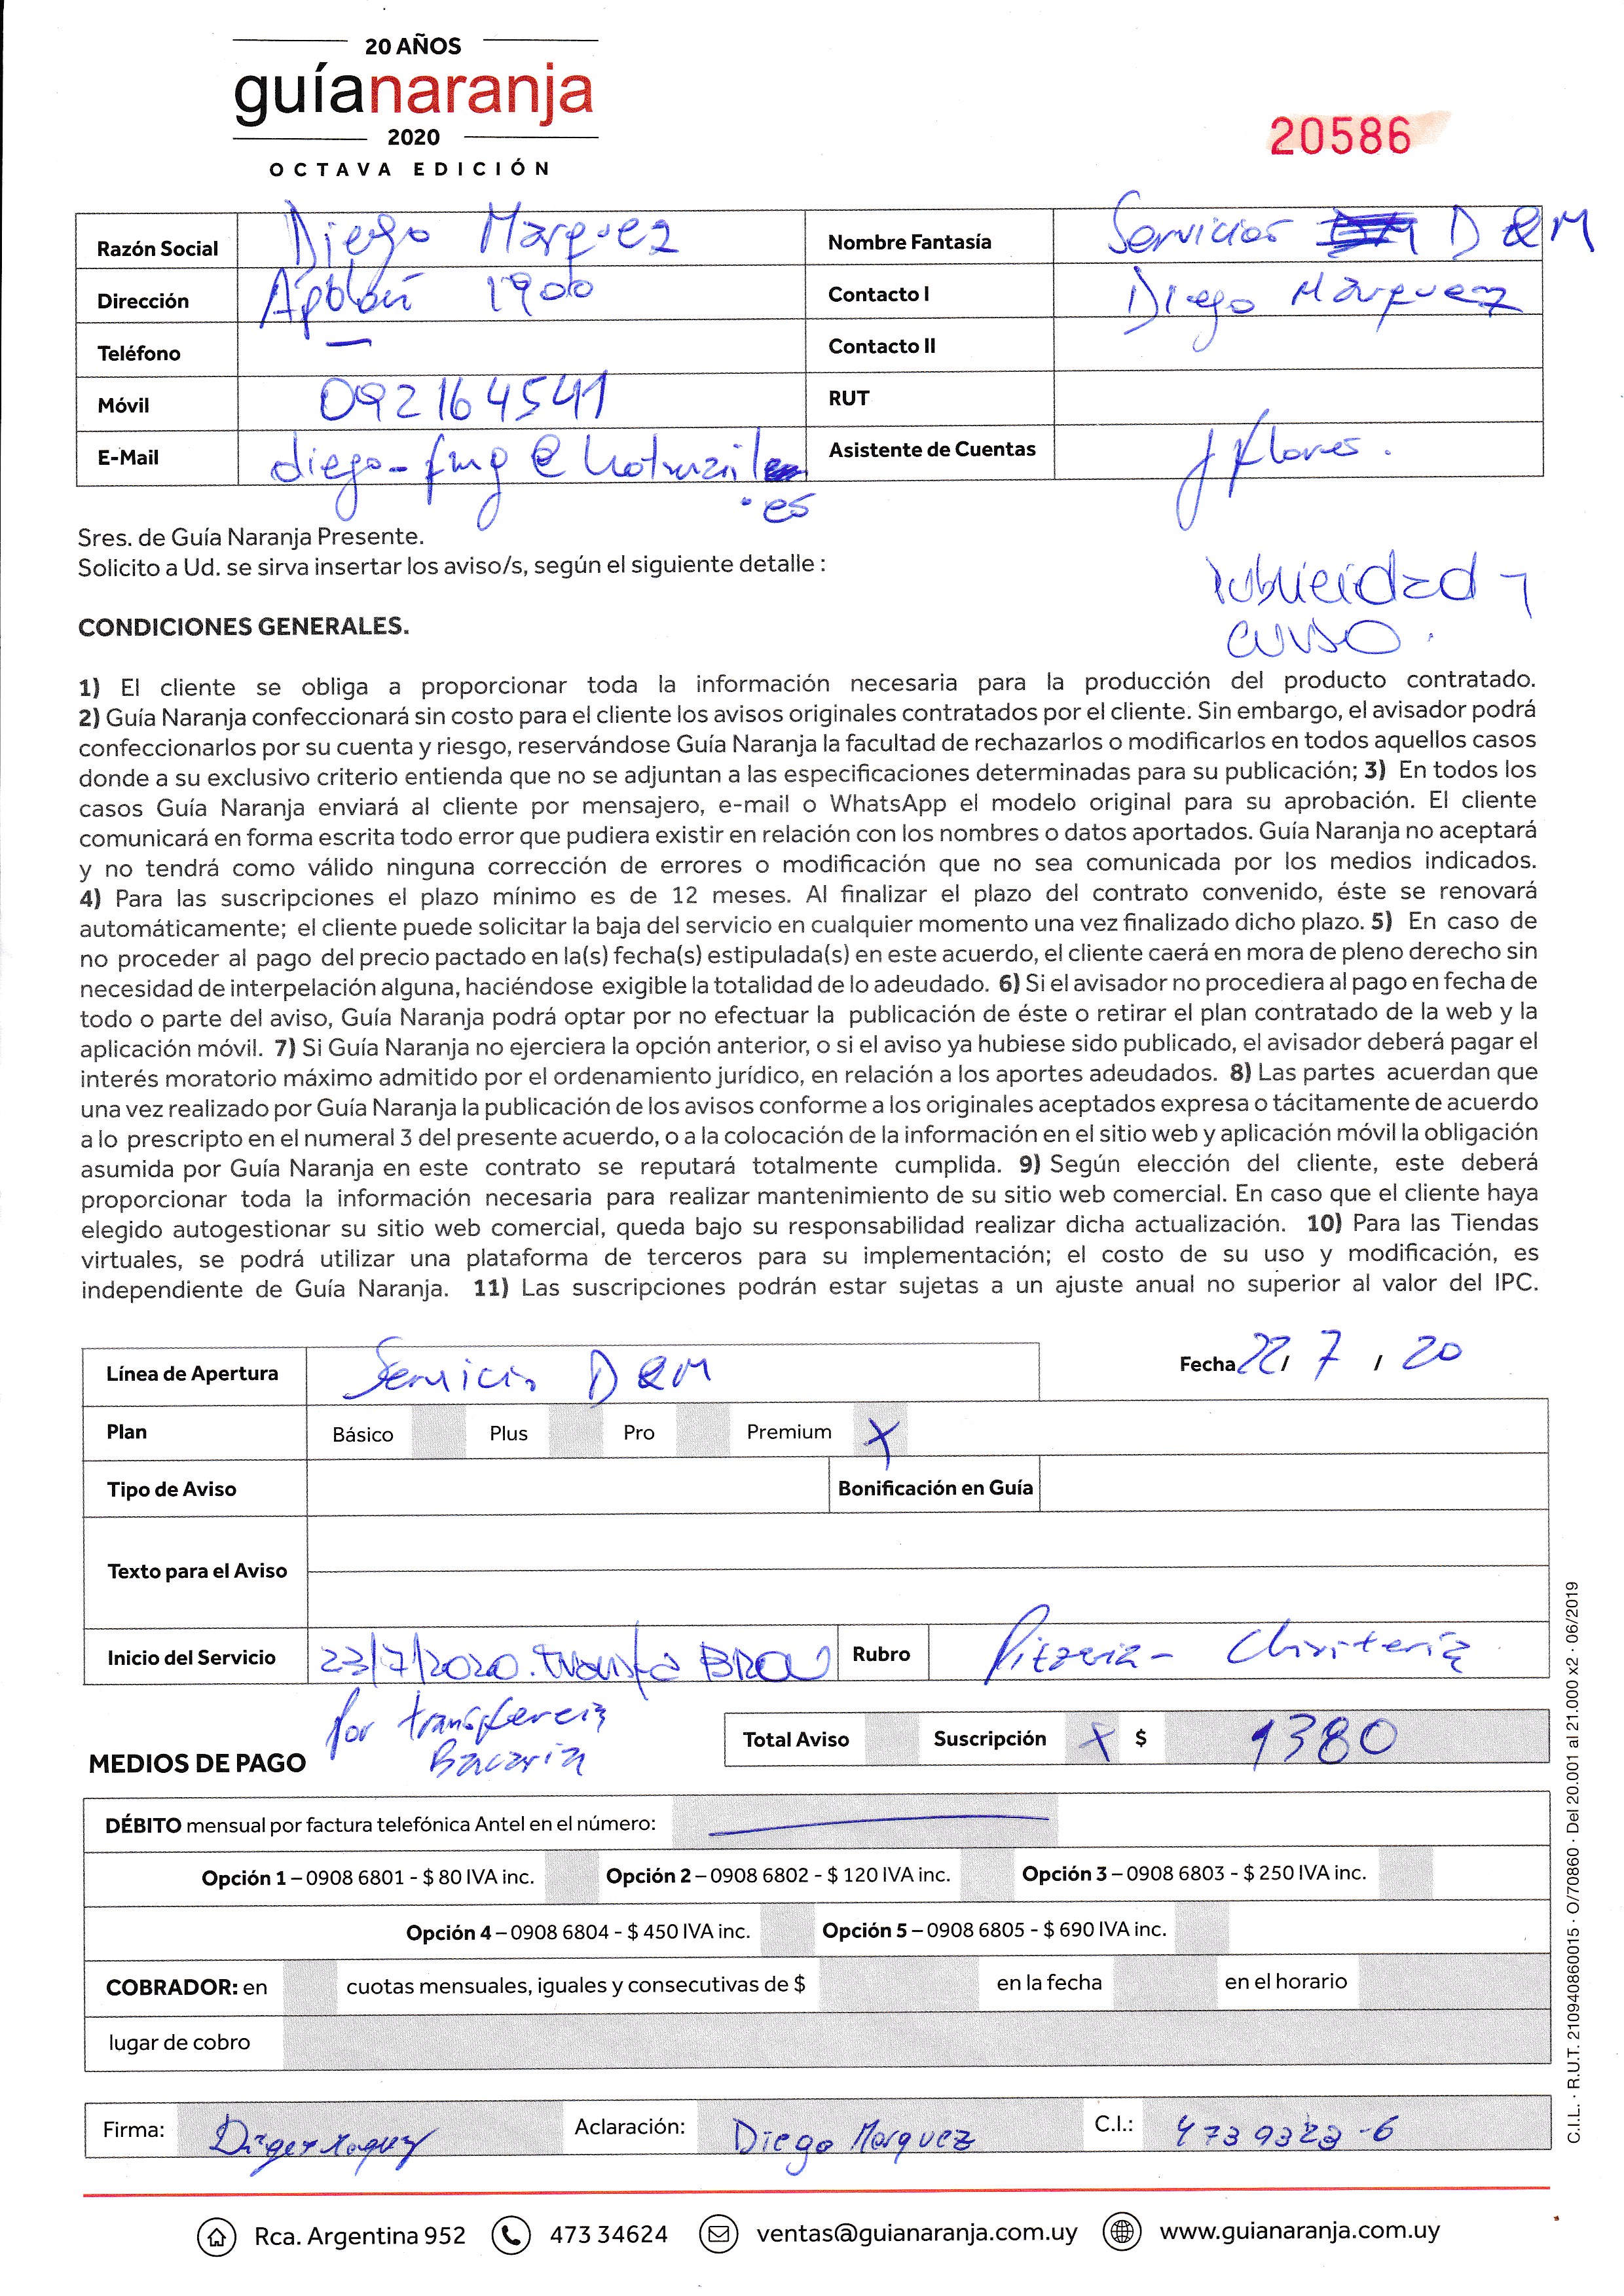 20 AÑOS
guíanaranja
2020
OCTAVA EDICIÓN
20586
Razón Social Diego Marquez Nombre Fantasía Servicios D&M
Dirección 1900 Contacto I Diego Marquez
Teléfono — Contacto II
Móvil 092164541 RUT
E-Mail diego-fmg@hotmail Asistente de Cuentas J Flores.
.es
Sres. de Guía Naranja Presente.
Solicito a Ud. se sirva insertar los aviso/s, según el siguiente detalle :
Publicidad y
CONDICIONES GENERALES.
1) El cliente se obliga a proporcionar toda la información necesaria para la producción del producto contratado.
2) Guía Naranja confeccionará sin costo para el cliente los avisos originales contratados por el cliente. Sin embargo, el avisador podrá
confeccionarlos por su cuenta y riesgo, reservándose Guía Naranja la facultad de rechazarlos o modificarlos en todos aquellos casos
donde a su exclusivo criterio entienda que no se adjuntan a las especificaciones determinadas para su publicación; 3) En todos los
casos Guía Naranja enviará al cliente por mensajero, e-mail o WhatsApp el modelo original para su aprobación. El cliente
comunicará en forma escrita todo error que pudiera existir en relación con los nombres o datos aportados. Guía Naranja no aceptará
y no tendrá como válido ninguna corrección de errores o modificación que no sea comunicada por los medios indicados.
4) Para las suscripciones el plazo mínimo es de 12 meses. Al finalizar el plazo del contrato convenido, éste se renovará
automáticamente; el cliente puede solicitar la baja del servicio en cualquier momento una vez finalizado dicho plazo. 5) En caso de
no proceder al pago del precio pactado en la(s) fecha(s) estipulada(s) en este acuerdo, el cliente caerá en mora de pleno derecho sin
necesidad de interpelación alguna, haciéndose exigible la totalidad de lo adeudado. 6) Si el avisador no procediera al pago en fecha de
todo o parte del aviso, Guía Naranja podrá optar por no efectuar la publicación de éste o retirar el plan contratado de la web y la
aplicación móvil. 7) Si Guía Naranja no ejerciera la opción anterior, o si el aviso ya hubiese sido publicado, el avisador deberá pagar el
interés moratorio máximo admitido por el ordenamiento jurídico, en relación a los aportes adeudados. 8) Las partes acuerdan que
una vez realizado por Guía Naranja la publicación de los avisos conforme a los originales aceptados expresa o tácitamente de acuerdo
a lo prescripto en el numeral 3 del presente acuerdo, o a la colocación de la información en el sitio web y aplicación móvil la obligación
asumida por Guía Naranja en este contrato se reputará totalmente cumplida. 9) Según elección del cliente, este deberá
proporcionar toda la información necesaria para realizar mantenimiento de su sitio web comercial. En caso que el cliente haya
elegido autogestionar su sitio web comercial, queda bajo su responsabilidad realizar dicha actualización. 10) Para las Tiendas
virtuales, se podrá utilizar una plataforma de terceros para su implementación; el costo de su uso y modificación, es
independiente de Guía Naranja. 11) Las suscripciones podrán estar sujetas a un ajuste anual no superior al valor del IPC.
Línea de Apertura Servicios D&M Fecha 22/ 7 / 20
Plan Básico Plus Pro Premium X
Tipo de Aviso Bonificación en Guía
Texto para el Aviso
Inicio del Servicio 23/7/2020. BROU Rubro Pizzeria - Chiviteria
por transferencia
Bacaria
MEDIOS DE PAGO
Total Aviso Suscripción X $ 1380
DÉBITO mensual por factura telefónica Antel en el número:
Opción 1 – 0908 6801 - $ 80 IVA inc. Opción 2 – 0908 6802 - $ 120 IVA inc. Opción 3 – 0908 6803 - $ 250 IVA inc.
Opción 4 – 0908 6804 - $ 450 IVA inc. Opción 5 – 0908 6805 - $ 690 IVA inc.
COBRADOR: en cuotas mensuales, iguales y consecutivas de $ en la fecha en el horario
lugar de cobro
Firma: Diego Marquez Aclaración: Diego Marquez C.I.: 4739323-6
Rca. Argentina 952 473 34624 ventas@guianaranja.com.uy www.guianaranja.com.uy
C.I.L. · R.U.T. 210940860015 · O/70860 · Del 20.001 al 21.000 x2 · 06/2019